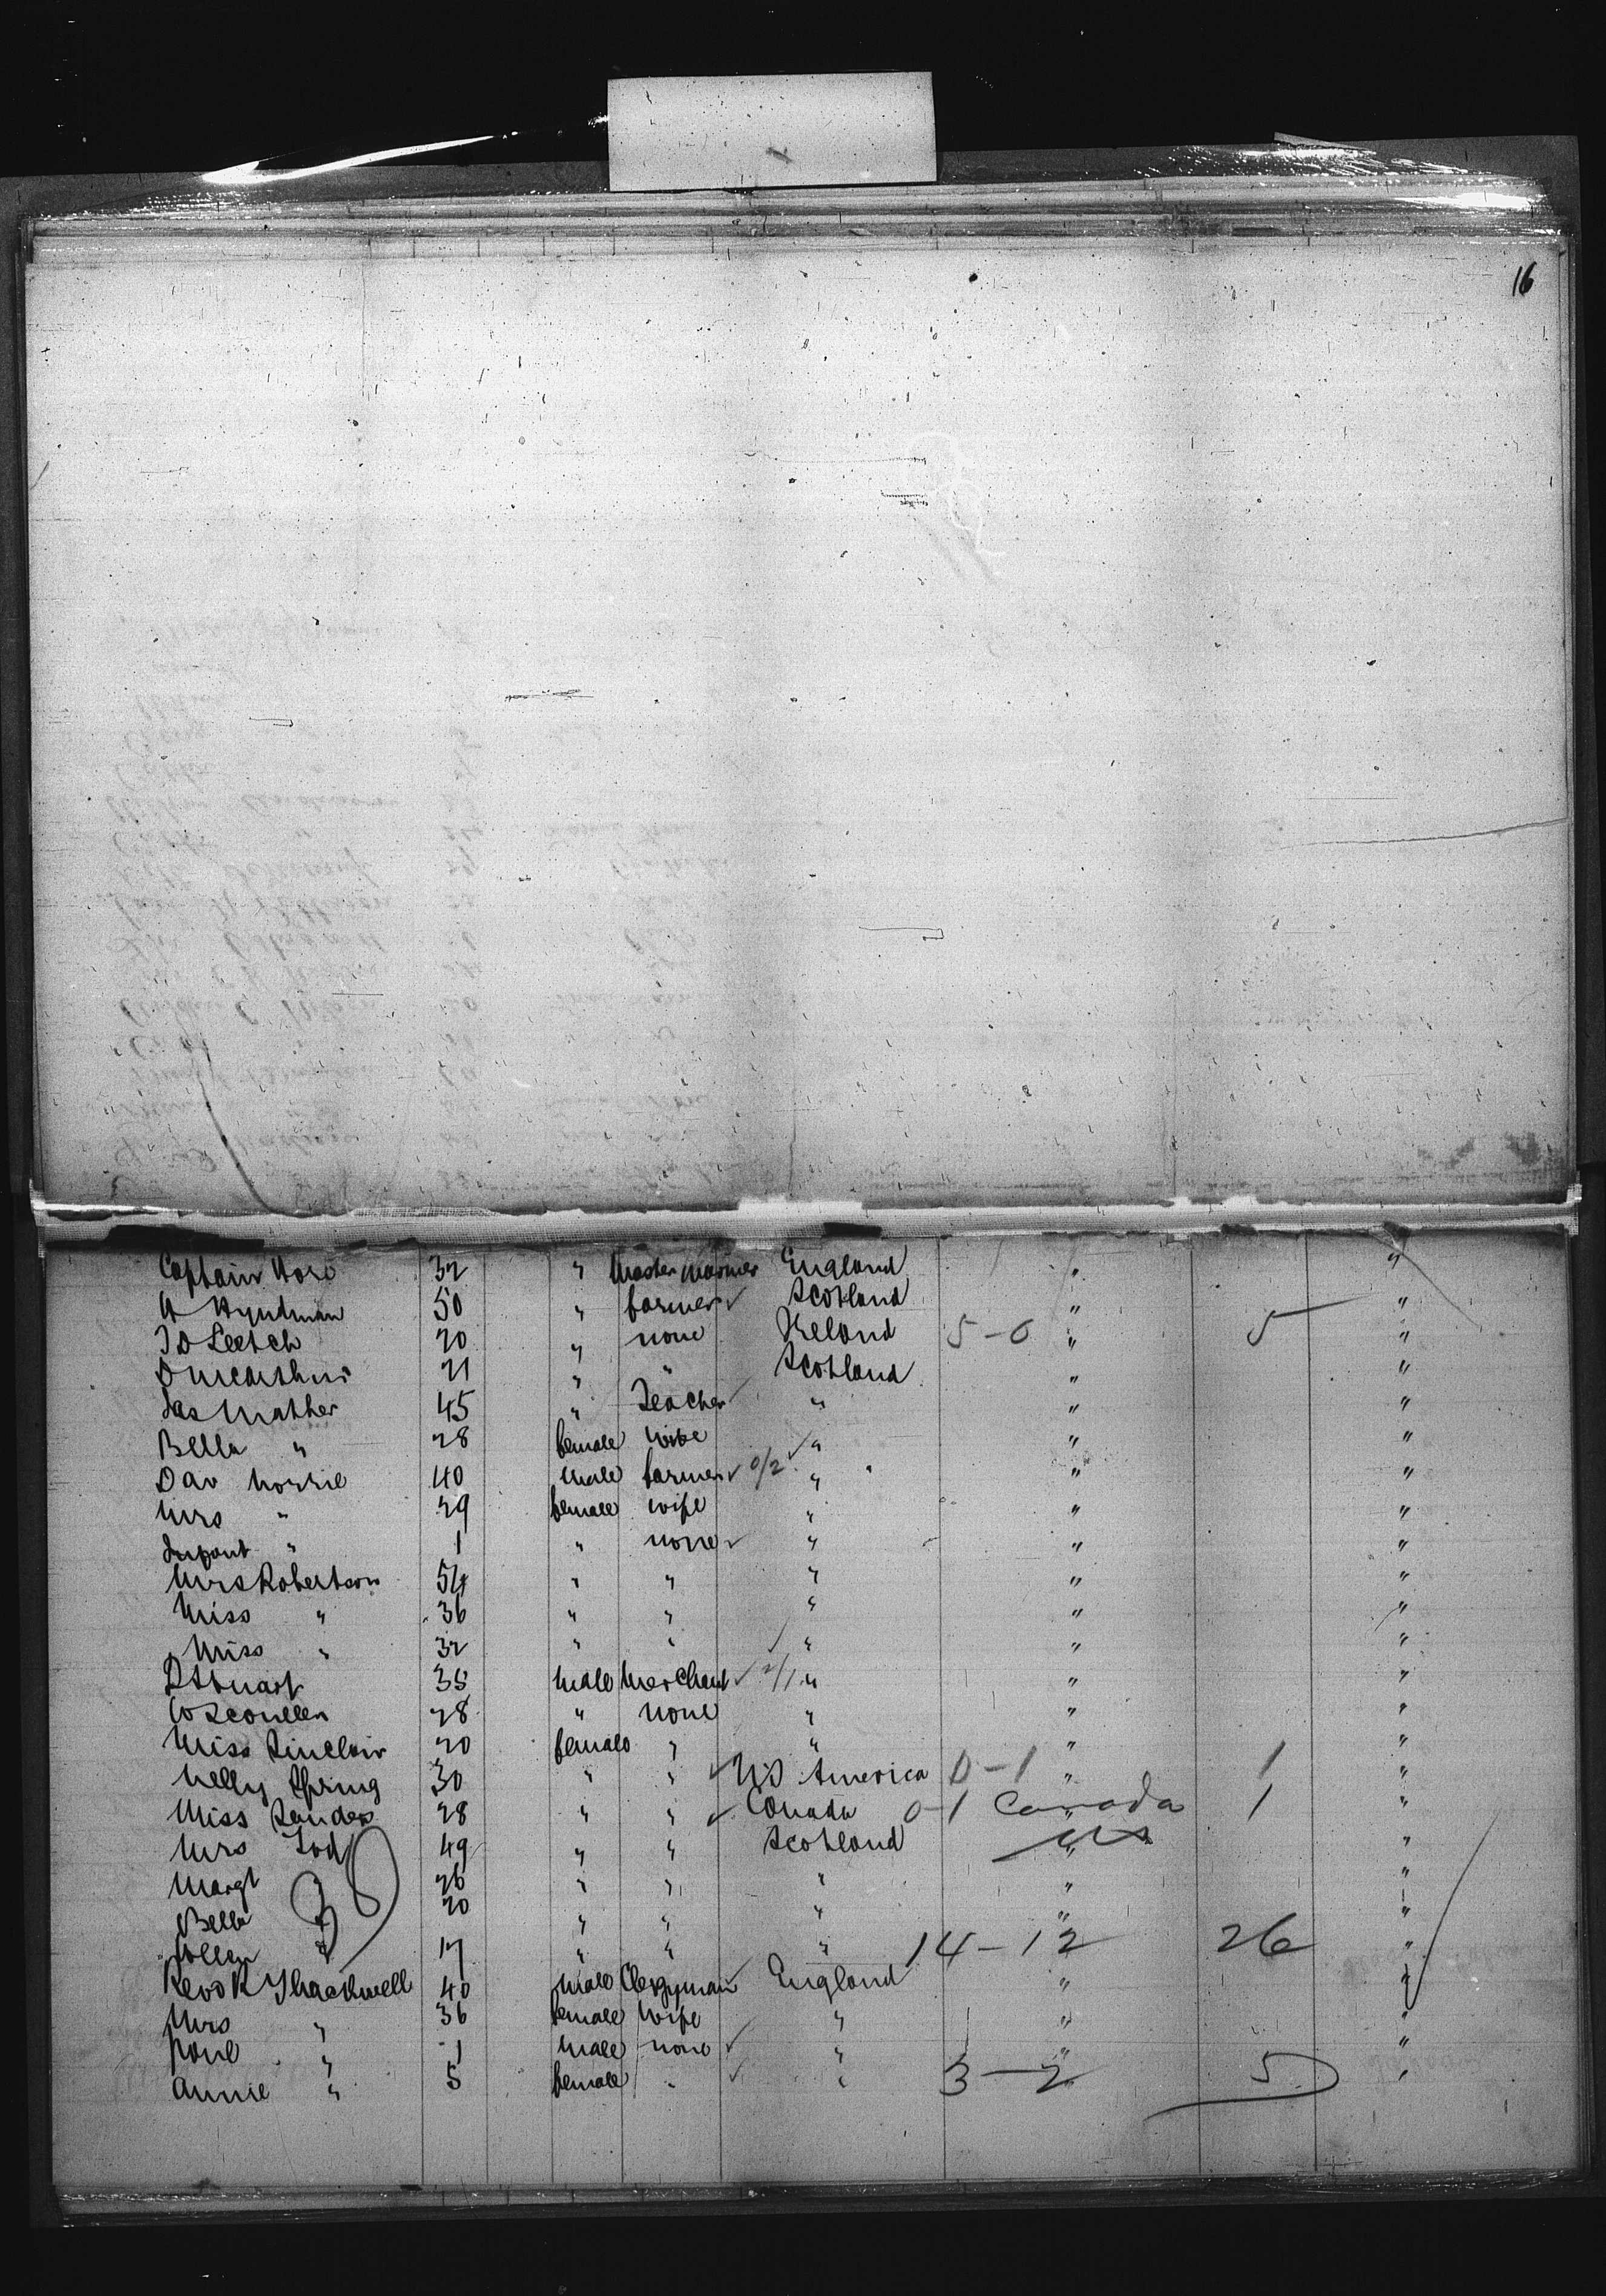 16
Captain Hore 32 " Master Mariner England " "
A Hyndman 50 " farmer Scotland " "
J D Leetch 20 " none Ireland 5-0 " 5 "
D McArthur 21 " " Scotland " "
Jas Mather 45 " Teacher " " "
Bella " 28 female wife " " "
Dav Norrie 40 male farmer 0/2 " " "
Mrs " 29 female wife " " "
Infant " 1 " none " " "
Mrs Robertson 54 " " " " "
Miss " 36 " " " " "
Miss " 32 " " " " "
D Stuart 35 male Merchant 2/1 " " "
28 " none " " "
Miss Sinclair 20 female " " " "
Nelly Spring 30 " " US America 0-1 " 1 "
Miss Sanders 28 " " Canada 0-1 Canada " 1 "
Mrs Tod 49 " " Scotland US " "
Margt " 26 " " " " "
Bella " 20 " " " " "
" 17 " " " 14-12 26 "
Revd K Thackwell 40 male Clergyman England " "
Mrs " 36 female wife " " "
" 1 male none " " "
Annie " 5 female " " 3-2 5 "